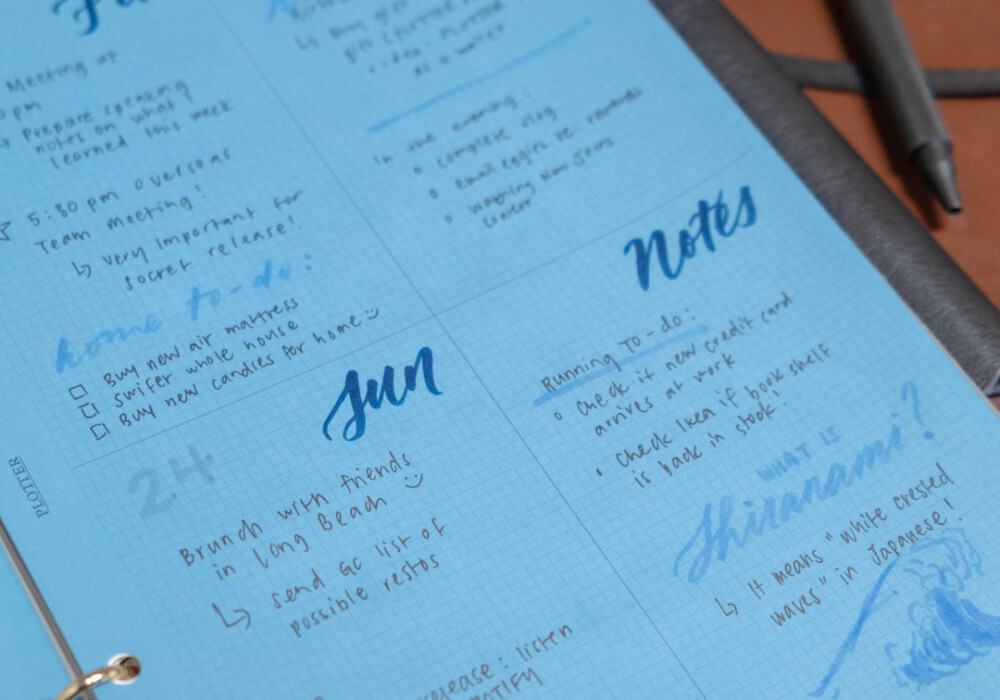 Meeting at
pm
↳ Prepare speaking
notes on what I
learned this week
☆ 5:30 pm overseas
Team meeting!
↳ very important for
secret release!
home to-do:
☐ Buy new air mattress
☐ swifer whole house
☐ Buy new candles for home
↳ Buy gift
• idea:
as a wallet
In the evening:
o complete vlog
o email eggies re: rewards
o
Sun
24
Brunch with friends
in Long Beach
↳ send GC list of
possible restos
release: listen
Notes
Running To-do:
o Check if new credit card
arrives at work
• Check Ikea if book shelf
is back in stock!
WHAT IS
Shiranami?
↳ It means "white crested
waves" in Japanese!
PLOTTER